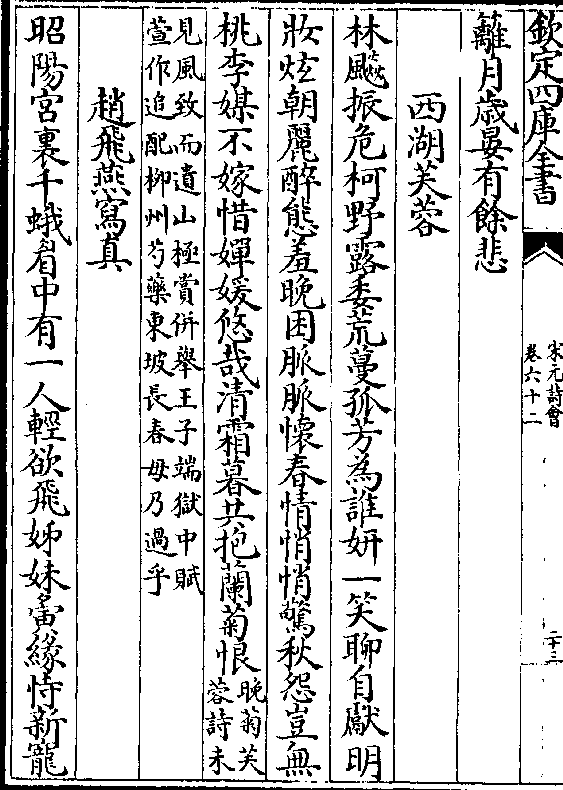 欽定四庫全書
宋元詩會
卷六十二
二十三
籬月歳晏有餘悲
西湖芙蓉
林飈振危柯野露委荒蔓孤芳為誰妍一笑聊自獻明
妝炫朝麗醉態羞晚困脈脈懷春情悄悄驚秋怨豈無
桃李媒不嫁惜嬋媛悠哉清霜暮共抱蘭菊恨
晚菊芙
蓉詩未
見風致而遺山極賞併舉王子端獄中賦
萱作追配柳州芍藥東坡長春毋乃過乎
趙飛燕寫真
昭陽宮裏千蛾眉中有一人輕欲飛姊妹夤緣恃新寵